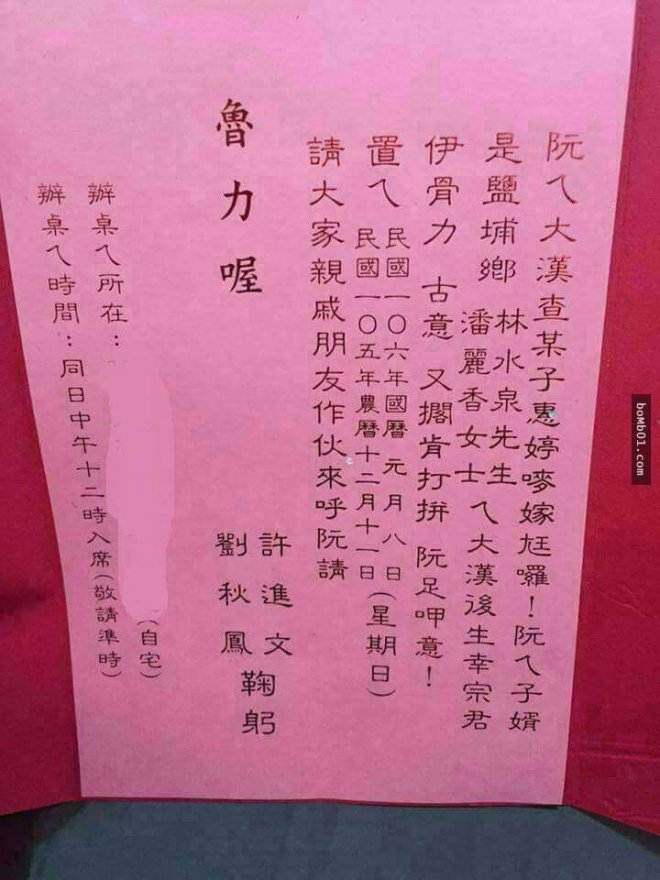 阮ㄟ大漢查某子惠婷嘜嫁尪囉！阮ㄟ子婿
是鹽埔鄉 林水泉先生 潘麗香女士 ㄟ大漢後生幸宗君
伊骨力 古意 又擱肯打拼 阮足呷意！
置ㄟ 民國一〇六年國曆 元月八日 民國一〇五年農曆十二月十一日 (星期日)
請大家親戚朋友作伙來呼阮請
魯力喔
許進文
劉秋鳳
鞠躬
辦桌ㄟ所在： (自宅)
辦桌ㄟ時間：同日中午十二時入席(敬請準時)
boMb01.com